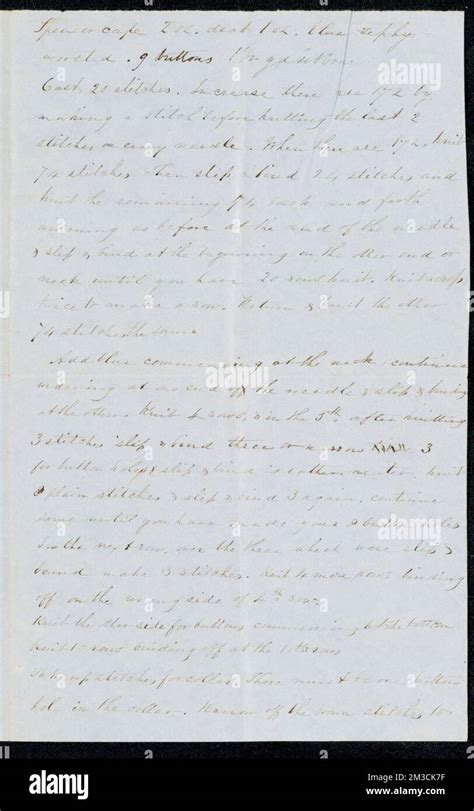 Spencer cape 2 oz. dark 1 oz. blue zephyr
worsted. 9 buttons 1 1/2 yd ribbon
Cast 20 stitches. Increase there are 172 by
making a stitch before knitting the last 2
stitches on every needle. When there are 172, knit
74 stitches then slip & bind 24 stitches and
knit the remaining 74 back and forth
widening as before at the end of the needle
& slip & bind at the beginning on the other end or
neck until you have 20 rows knit. Knit across
twice to make a row. Return & knit the other
74 stitches the same
Add blue commencing at the neck, continue
widening at one end of the needle & slip & binding
at the other. Knit 4 rows, & in the 5th after knitting
3 stitches slip & bind three 3
for button holes slip & bind is . Knit
plain stitches & slip & bind 3 again, continue
same until you have made your button holes
In the next row, over the three which were slip &
bound make 3 stitches. Knit 4 more rows binding
off on the wrong side of 4th row.
Knit the other side for buttons commencing at the bottom
knit 10 rows binding off at the 10th row
Take up stitches for collar. There must be one button
hole in the collar. Narrow off the stitches to
alamy
alamy
www.alamy.com
Image ID: 2M3CK7F